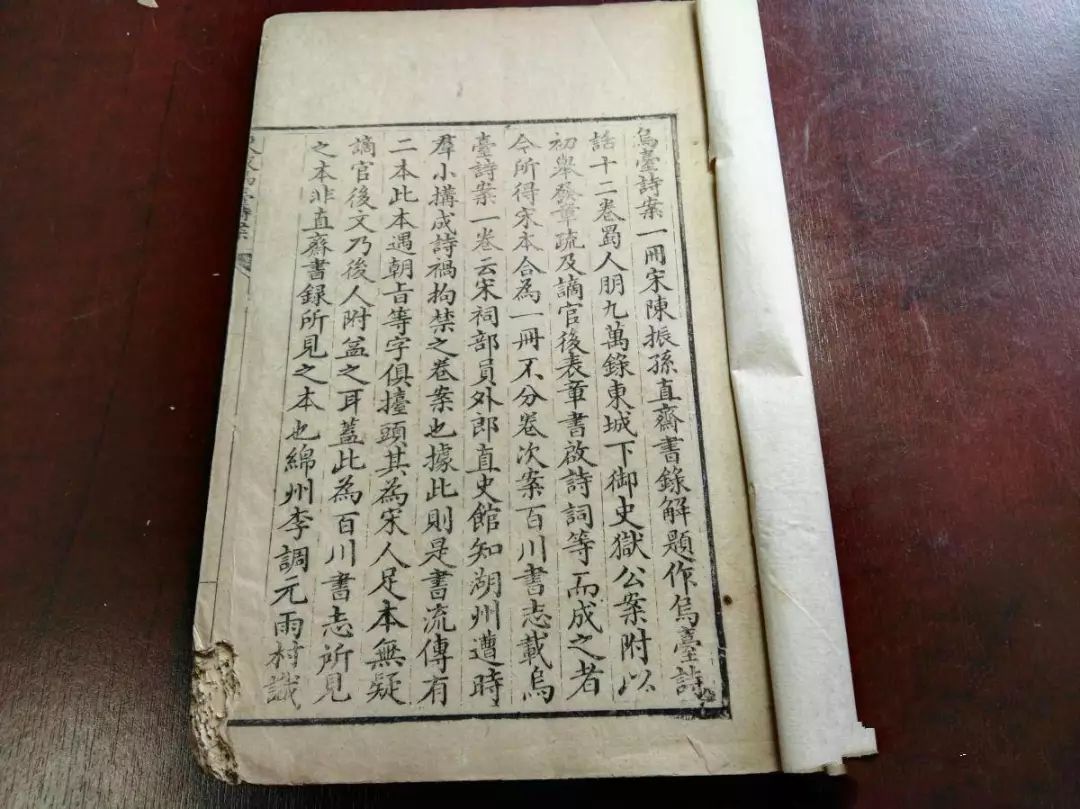 烏臺詩案一冊宋陳振孫直齋書錄解題作烏臺詩
話十二卷蜀人朋九萬錄東城下御史獄公案附以
初舉發章疏及謫官後表章書啟詩詞等而成之者
今所得宋本合為一冊不分卷次案百川書志載烏
臺詩案一卷云宋祠部員外郎直史館知湖州遭時
羣小搆成詩禍拘禁之卷案也據此則是書流傳有
二本此本遇朝旨等字俱擡頭其為宋人足本無疑
謫官後文乃後人附益之耳蓋此為百川書志所見
之本非直齋書錄所見之本也綿州李調元雨村識